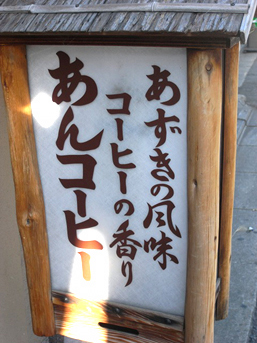 あずきの風味
コーヒーの香り
あんコーヒー